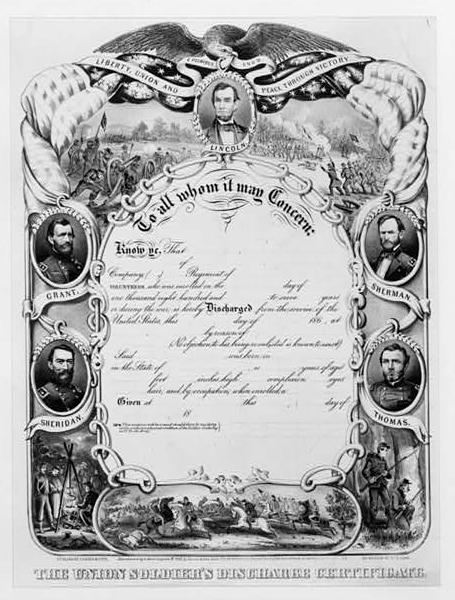 LIBERTY, UNION AND
PEACE THROUGH VICTORY
LINCOLN.
To all whom it may Concern:
Know ye, That
of
Company ( ) Regiment of
VOLUNTEERS, who was enrolled on the day of
one thousand eight hundred and to serve years
or during the war, is hereby Discharged from the service of the
United States, this day of 186 , at
by reason of
(No objection to his being re-enlisted is known to exist)
Said was born in
in the State of is years of age
feet inches high complexion eyes
hair, and by occupation, when enrolled, a
Given at this day of
18
GRANT.
SHERMAN.
SHERIDAN.
THOMAS.
THE UNION SOLDIER'S DISCHARGE CERTIFICATE.